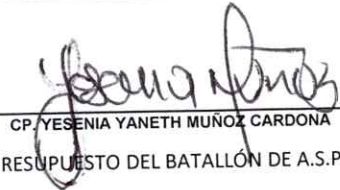 Yesenia Muñoz
CP. YESENIA YANETH MUÑOZ CARDONA
RESUPUESTO DEL BATALLÓN DE A.S.P